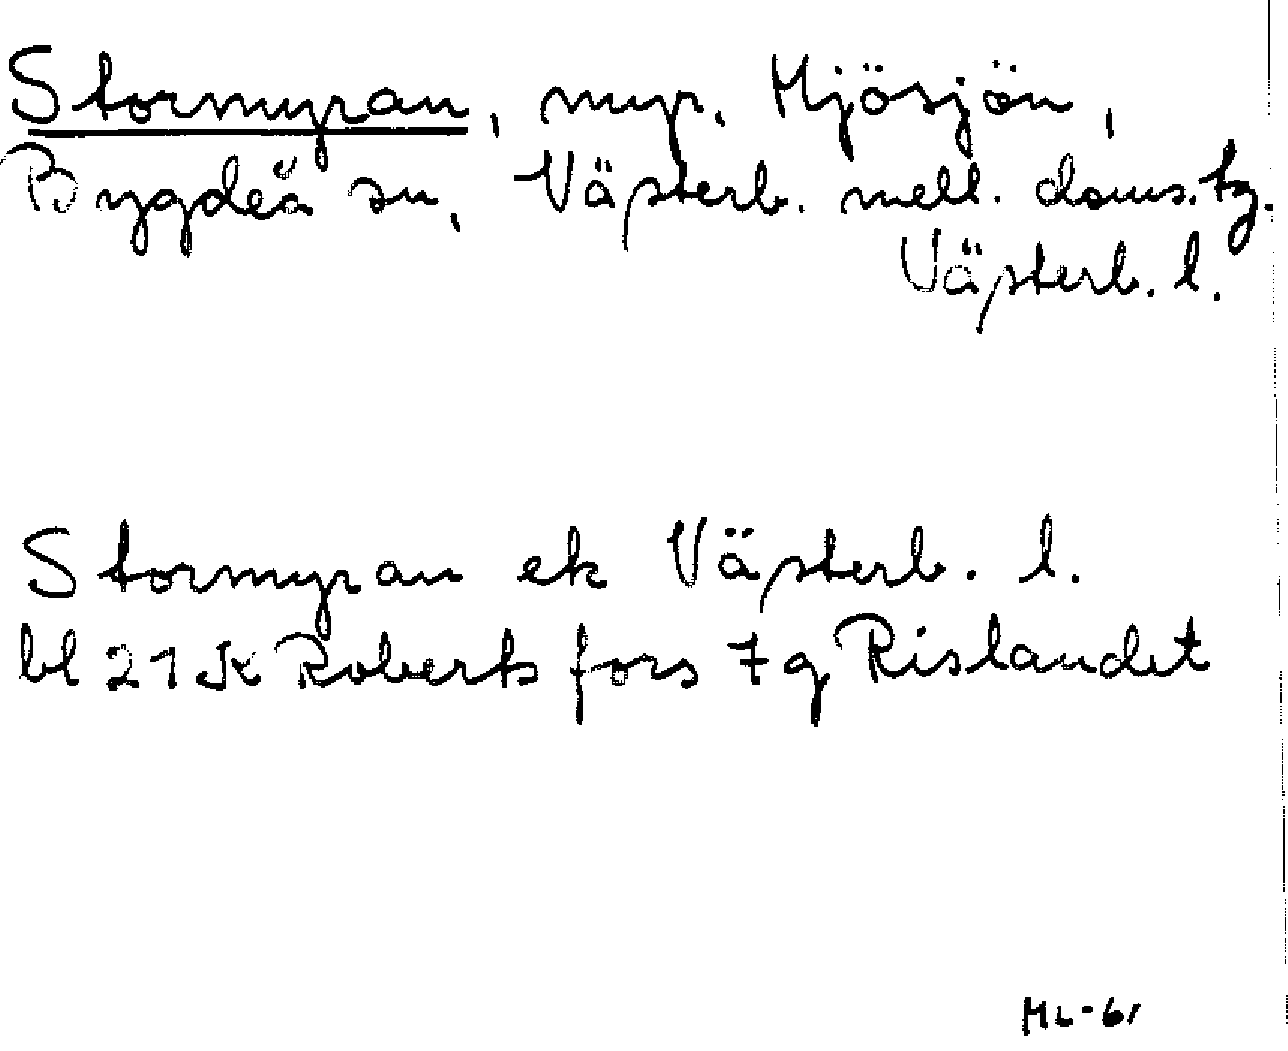 Stormyran, myr. Mjösjön,
Bygdeå sn, Västerb. mell. doms. tg.
Västerb. l.
Stormyran ek Västerb. l.
bl 21 K Robertsfors 7 g Rislandet
ML-61